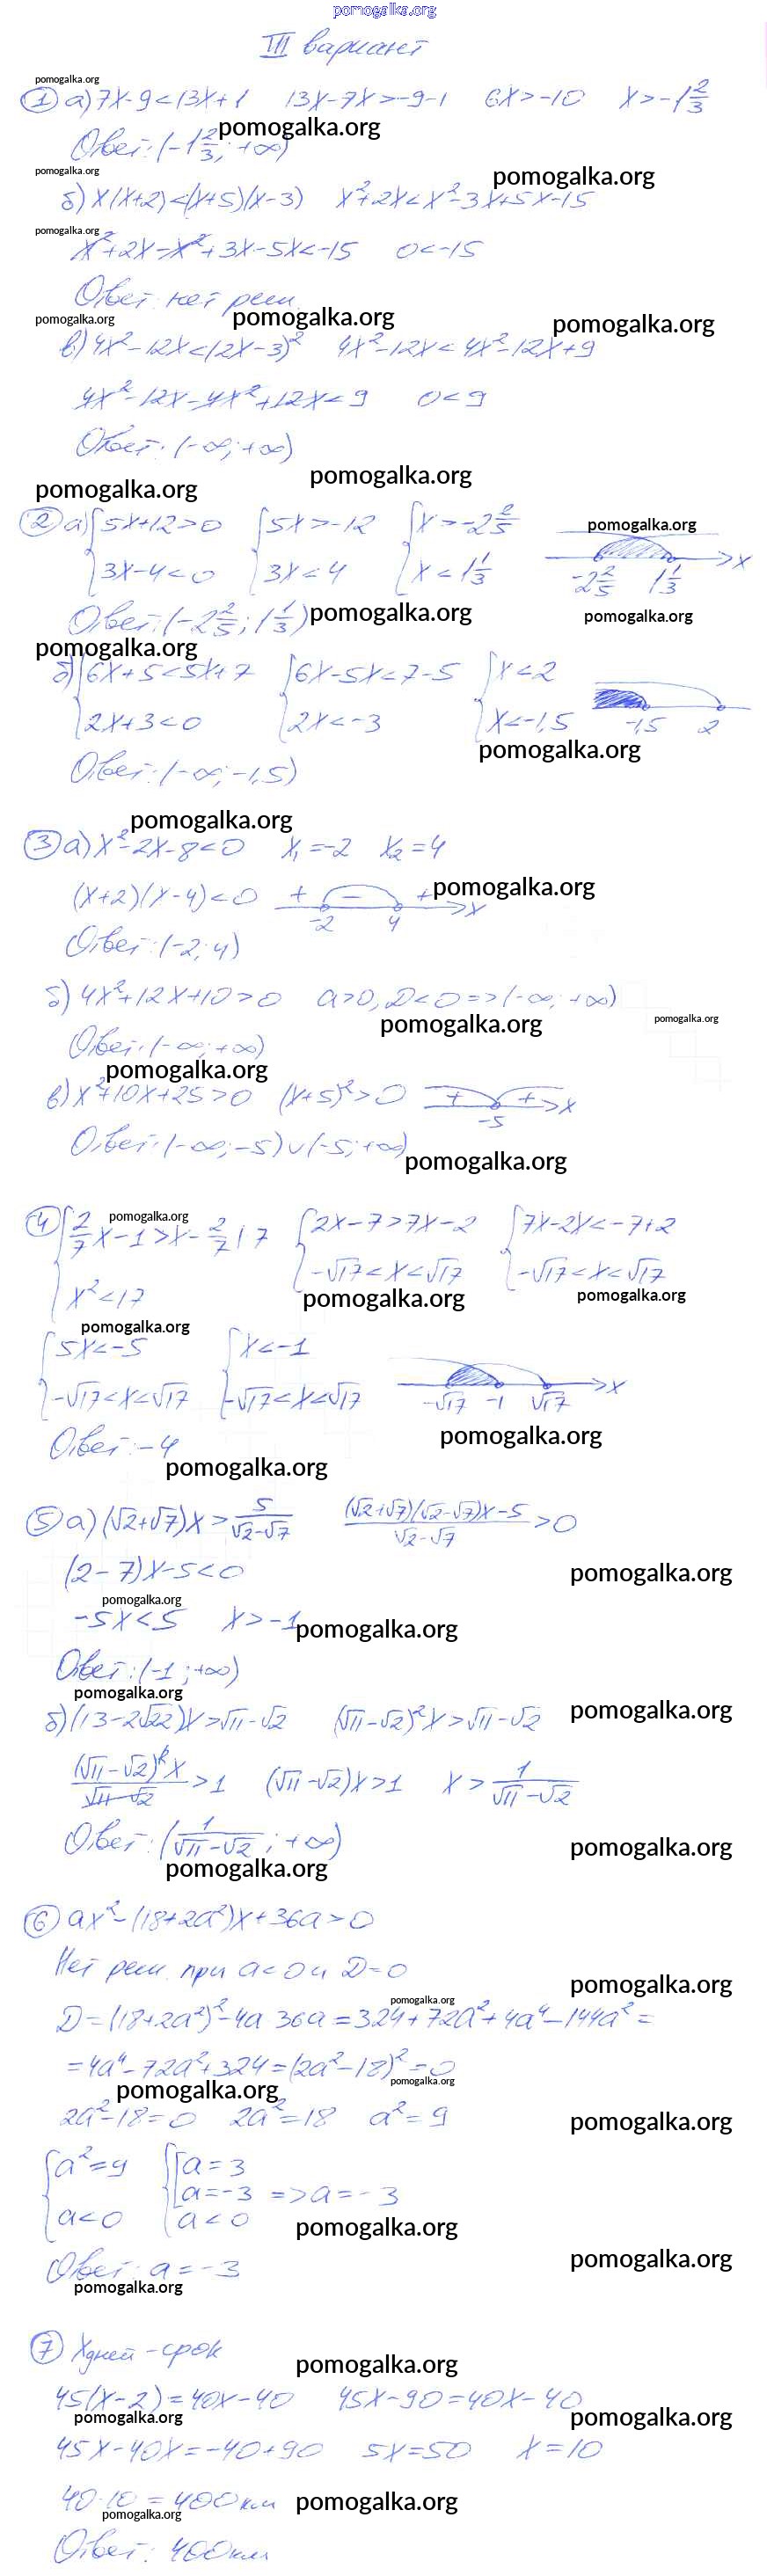 pomogalka.org
III вариант
pomogalka.org
① а) 7x-9<13x+1 13x-7x>-9-1 6x>-10 x>-1 2/3
Ответ: (-1 2/3; +∞) pomogalka.org
pomogalka.org pomogalka.org
б) x(x+2)<(x+5)(x-3) x²+2x<x²-3x+5x-15
pomogalka.org
x²+2x-x²+3x-5x<-15 0<-15
Ответ: нет реш.
pomogalka.org pomogalka.org pomogalka.org
в) 4x²-12x<(2x-3)² 4x²-12x<4x²-12x+9
4x²-12x-4x²+12x<9 0<9
Ответ: (-∞; +∞)
pomogalka.org pomogalka.org
② а) {5x+12>0 {5x>-12 {x>-2 2/5 pomogalka.org
3x-4<0 3x<4 x<1 1/3 -2 2/5 1 1/3 x
Ответ: (-2 2/5; 1 1/3) pomogalka.org pomogalka.org
pomogalka.org
б) {6x+5<5x+7 {6x-5x<7-5 {x<2
2x+3<0 2x<-3 x<-1,5 -1,5 2
pomogalka.org
Ответ: (-∞; -1,5)
pomogalka.org
③ а) x²-2x-8<0 x₁=-2 x₂=4
(x+2)(x-4)<0 + - + x pomogalka.org
-2 4
Ответ: (-2; 4)
б) 4x²+12x+10>0 a>0, D<0 => (-∞; +∞)
pomogalka.org pomogalka.org
Ответ: (-∞; +∞)
pomogalka.org
в) x²+10x+25>0 (x+5)²>0 + + x
-5
Ответ: (-∞; -5)∪(-5; +∞)
pomogalka.org
pomogalka.org
④ {2/7 x-1>x-2/7 |·7 {2x-7>7x-2 {7x-2x<-7+2
x²<17 -√17<x<√17 -√17<x<√17
pomogalka.org pomogalka.org
pomogalka.org
{5x<-5 {x<-1
-√17<x<√17 -√17<x<√17 -√17 -1 √17 x
Ответ: -4 pomogalka.org
pomogalka.org
⑤ а) (√2+√7)x>5/(√2-√7) ((√2+√7)(√2-√7)x-5)/(√2-√7)>0
(2-7)x-5<0 pomogalka.org
pomogalka.org
-5x<5 x>-1 pomogalka.org
Ответ: (-1; +∞)
pomogalka.org pomogalka.org
б) (13-2√22)x>√11-√2 (√11-√2)²x>√11-√2
(√11-√2)²x/(√11-√2)>1 (√11-√2)x>1 x>1/(√11-√2)
Ответ: (1/(√11-√2); +∞) pomogalka.org
pomogalka.org
⑥ ax²-(18+2a²)x+36a>0
Нет реш. при a<0 и D=0
pomogalka.org
pomogalka.org
D=(18+2a²)²-4a·36a=324+72a²+4a⁴-144a²=
=4a⁴-72a²+324=(2a²-18)²=0
pomogalka.org pomogalka.org
2a²-18=0 2a²=18 a²=9 pomogalka.org
{a²=9 {[a=3
a=-3 => a=-3
a<0 a<0 pomogalka.org
Ответ: a=-3 pomogalka.org
pomogalka.org
⑦ x дней - срок
pomogalka.org
45(x-2)=40x-40 45x-90=40x-40
pomogalka.org pomogalka.org
45x-40x=-40+90 5x=50 x=10
40·10=400км pomogalka.org
pomogalka.org
Ответ: 400км